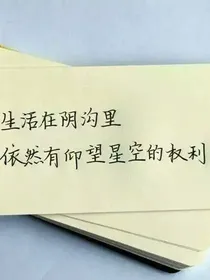 生活在阴沟里
依然有仰望星空的权利